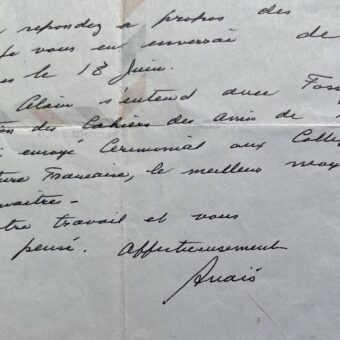 repondez a propos des
je vous en enverrai de
es le 18 Juin.
Alain s'entend avec
des Cahiers des amis de
envoyé Ceremonial aux
ture Francaise, le meilleur moy
naitre -
tre travail et vous
pensé. Affectueusement
Anaïs